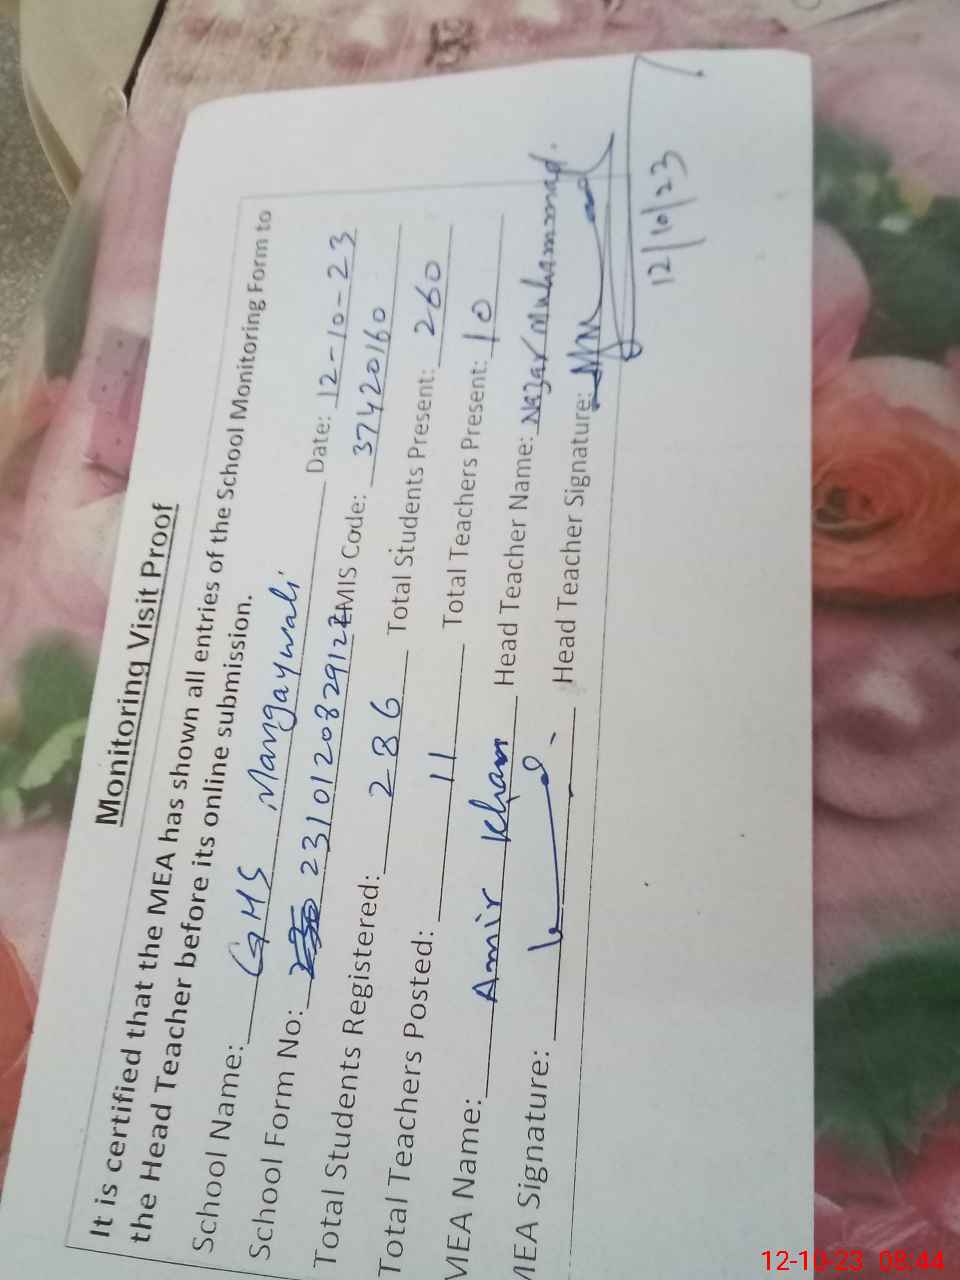 Monitoring Visit Proof
It is certified that the MEA has shown all entries of the School Monitoring Form to
the Head Teacher before its online submission.
School Name: GHS Mangaywali Date: 12-10-23
School Form No: 23101208291 EMIS Code: 37420160
Total Students Registered: 286 Total Students Present: 260
Total Teachers Posted: 11 Total Teachers Present: 10
MEA Name: Amir Khan Head Teacher Name: Nazar Muhammad.
MEA Signature: Head Teacher Signature:
12/10/23
12-10-23 08:44